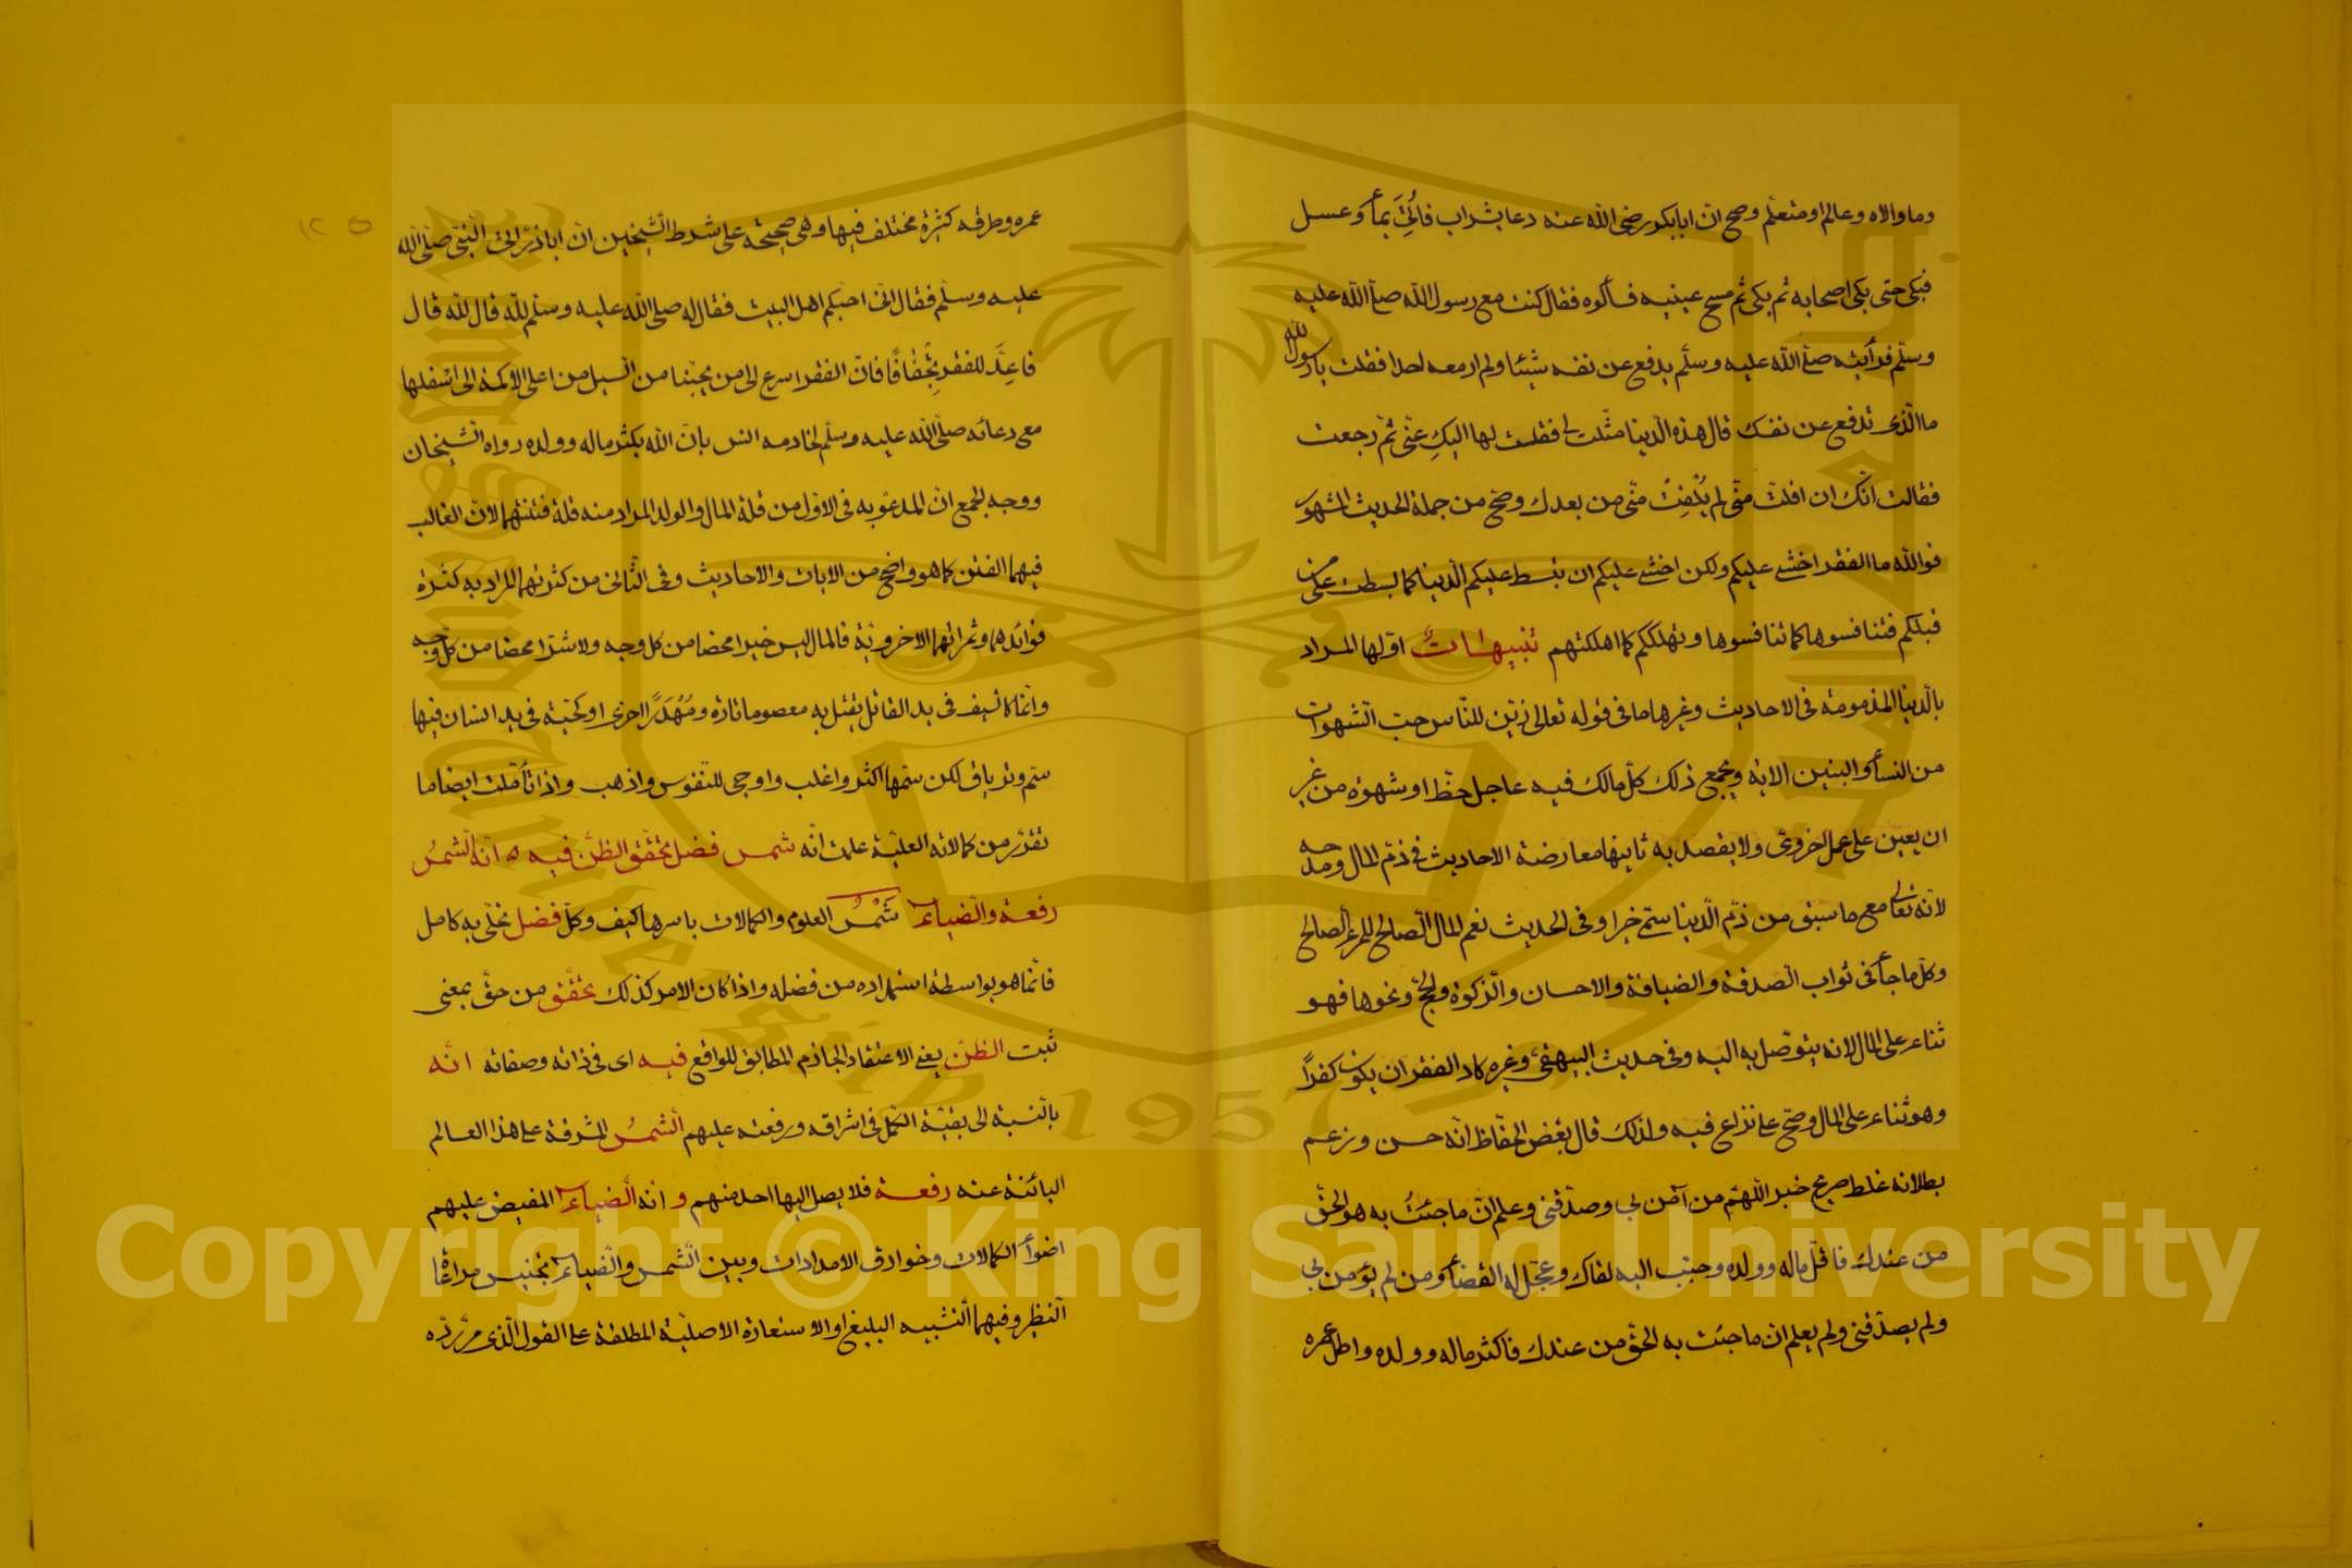 وما والاه وعالم او متعلّم وصح انّ ابابكر رضى الله عنه دعا بشراب فاُتِىَ بمأ وعسل
فبكى حتى بكى اصحابه ثم بكى ثم مسح عينيه فسألوه فقال كنت مع رسول الله صلّى الله عليه
وسلّم فرأيته صلّى الله عليه وسلّم يدفع عن نفسه شيئا ولم ار معه احدا فقلت يا رسول الله
ما الّذى تدفع عن نفسك قال هذه الّدنيا مثّلت لى فقلت لها اليكِ عنّى ثمّ رجعت
فقالت انّك ان افلتّ منّى لم يُفْلِتْ منّى من بعدك وصّح من جملة الحديث المشهور
فوالله ما الفقر اخشى عليكم ولكن اخشى عليكم ان تبسط عليكم الّدنيا كما بسطت على من
قبلكم فتنافسوها كما تنافسوها وتهلككم كما اهلكتهم تنبيهات اوّلها المراد
بالّدنيا المذمومة فى الاحاديث وغيرها ما فى قوله تعالى زيّن للنّاس حبّ الّشهوات
من النسأ والبنين الاية ويجمع ذلك كلّ مالك فيه عاجل حظّ او شهوة من غير
ان يعين على عمل اخروىّ ولا يقصد به ثانيها معارضة الاحاديث فى ذمّ المال ومدحه
لانّه تعالى مع ما سبق من ذمّ الّدنيا سمّى خيرا وفى الحديث نعم المال الّصالح للمرء الّصالح
وكلّ ما جأ فى ثواب الّصدقة والضيافة والاحسان والّزكوة والحجّ ونحوها فهو
ثناء على المال لانه يتوّصل به اليه وفى حديث البيهقىّ وغيره كاد الفقر ان يكون كفراً
وهو ثناء على المال وصّح على نزاع فيه ولذلك قال بعض الحفّاظ انّه حسن وزعم
بطلانه غلط صريح خبر اللّهمّ من آمن بى وصدّقنى وعلم انّ ما جئتُ به هو الحّق
من عندك فاقلّ ماله وولده وحبّب اليه لقاك وعجّل له القضأ ومن لم يؤمن بى
ولم يصدّقنى ولم يعلم انّ ما جئت به الحّق من عندك فاكثر ماله وولده واطل عمره
١٢٥
عمره وطرقه كثيرة مختلف فيها وهى صحيحة على شرط الّشيخين انّ اباذرّ اتى الّنبىّ صلّى الله
عليه وسلّم فقال انّى احبّكم اهل البيت فقال له صلّى الله عليه وسلّم للّه قال للّه قال
فاعِدَّ للفقر تِجْفافًا فانّ الفقر اسرع الى من يحبّنا من الّسيل من اعلى الاكمة الى اسفلها
مع دعائه صلّى الله عليه وسلّم لخادمه انس بانّ الله يكثر ماله وولده رواه الّشيخان
ووجه الجمع انّ المدعوّ به فى الاوّل من قلة المال والولد المراد منه قلة فتنتهما لانّ الغالب
فيهما الفتن كما هو واضح من الايات والاحاديث وفى الّثانى من كثرتهما المراد به كثرة
فوائدهما وثمراتهما الاخرويّة فالمال ليس خيرا محضا من كل وجه ولا شرّا محضا من كل وجه
وانّما كالّسيف فى يد القاتل يقتل به معصوما تارة ومُهْدَرًا اخرى او كحيّة فى يد انسان فيها
سمّ وترياق لكن سمّها اكثر واغلب واوحى للنّفوس واذهب واذا تأمّلت ايضا ما
تقرّر من كمالاته العليّة علمت انّه شمس فضل تحقّق الظّنّ فيه ه انّه الّشمسُ
رفعة والّضياء شَمْسُ العلوم والكمالات باسرها كيف وكلّ فضل تحلّى به كامل
فانّما هو بواسطة استمداده من فضله واذا كان الامر كذلك تحقّق من حقّ بمعنى
ثبت الظنّ يعنى الاعتقاد الجاذم المطابق للواقع فيه اى فى ذاته وصفاته انّه
بالّنسبة الى بقيّة الكمّل فى اشراقه ورفعته عليهم الّشمسُ المشرقة على هذا العالم
البائنة عنه رفعة فلا يصل اليها احد منهم و انه الّضياء المفيض عليهم
اضوأ الكمالات وخوارق الامدادات وبين الّشمس والّضياء تجنيس مراعاة
الّنظير وفيهما الّتشبيه البليغ او الاستعارة الاصليّة المطلقة على القول الّذى مرّ ردّه
Copyright © King Saud University
1957